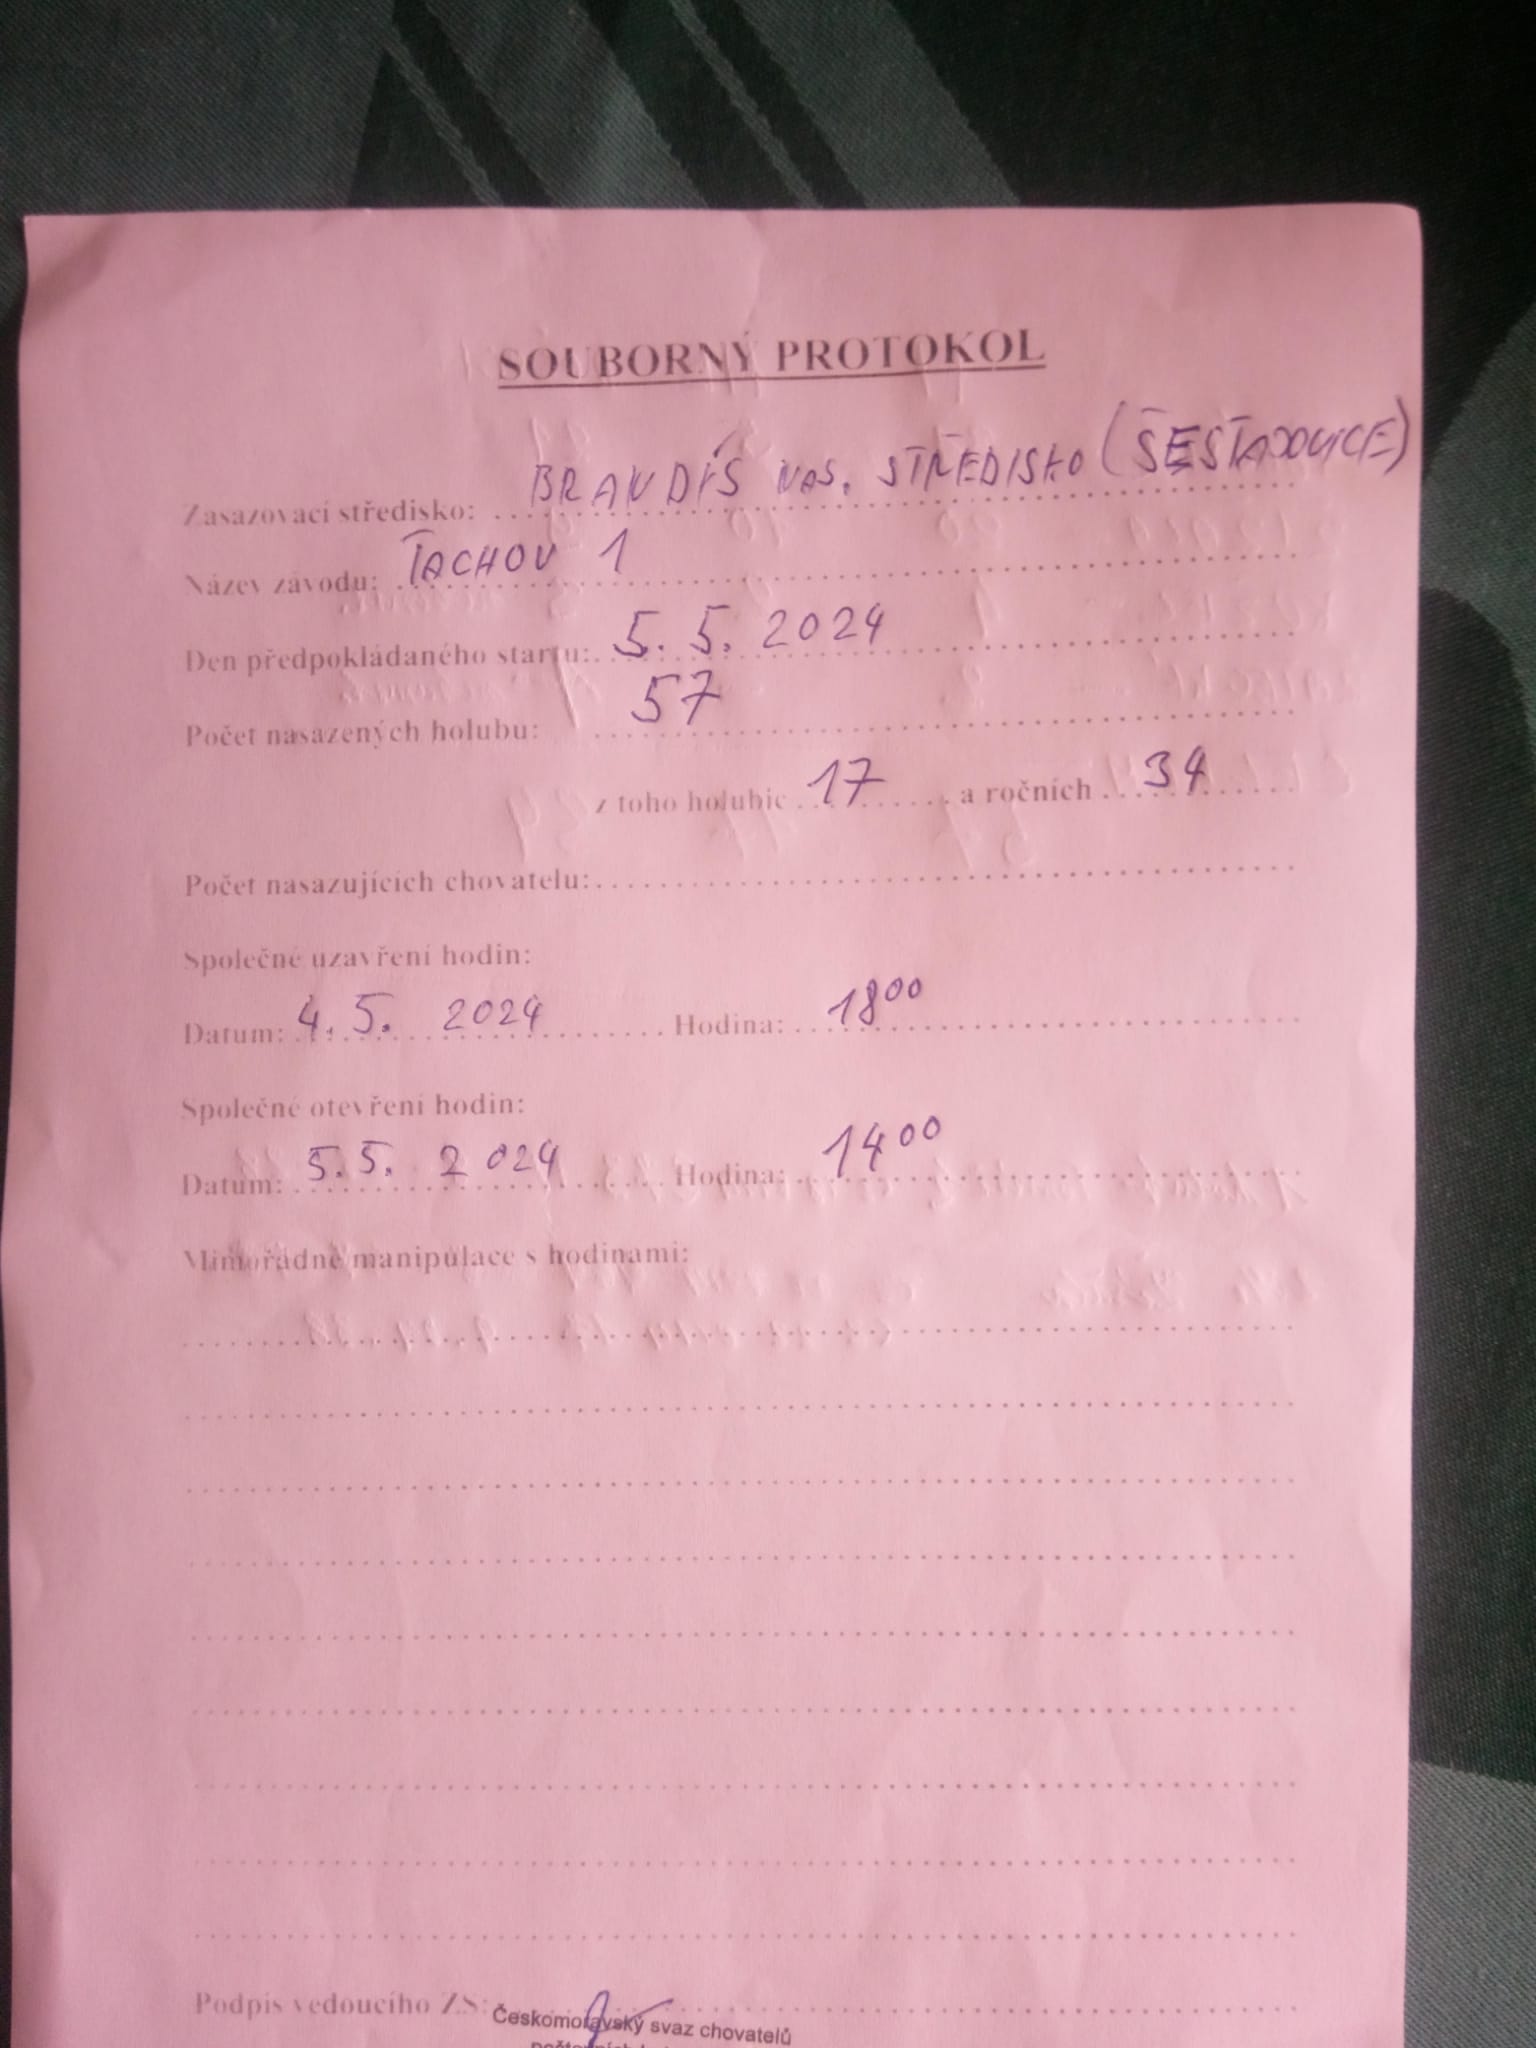 SOUBORNÝ PROTOKOL
Zasazovací středisko: BRANDÍS NAS. STŘEDISKO (ŠESTAJOVICE)
Název závodu: TACHOV 1
Den předpokládaného startu: 5. 5. 2024
Počet nasazených holubu: 57
z toho holubic 17 a ročních 34
Počet nasazujících chovatelu:
Společné uzavření hodin:
Datum: 4. 5. 2024 Hodina: 18⁰⁰
Společné otevření hodin:
Datum: 5. 5. 2024 Hodina: 14⁰⁰
Mimořádné manipulace s hodinami:
Podpis vedoucího ZS:
Českomoravský svaz chovatelů